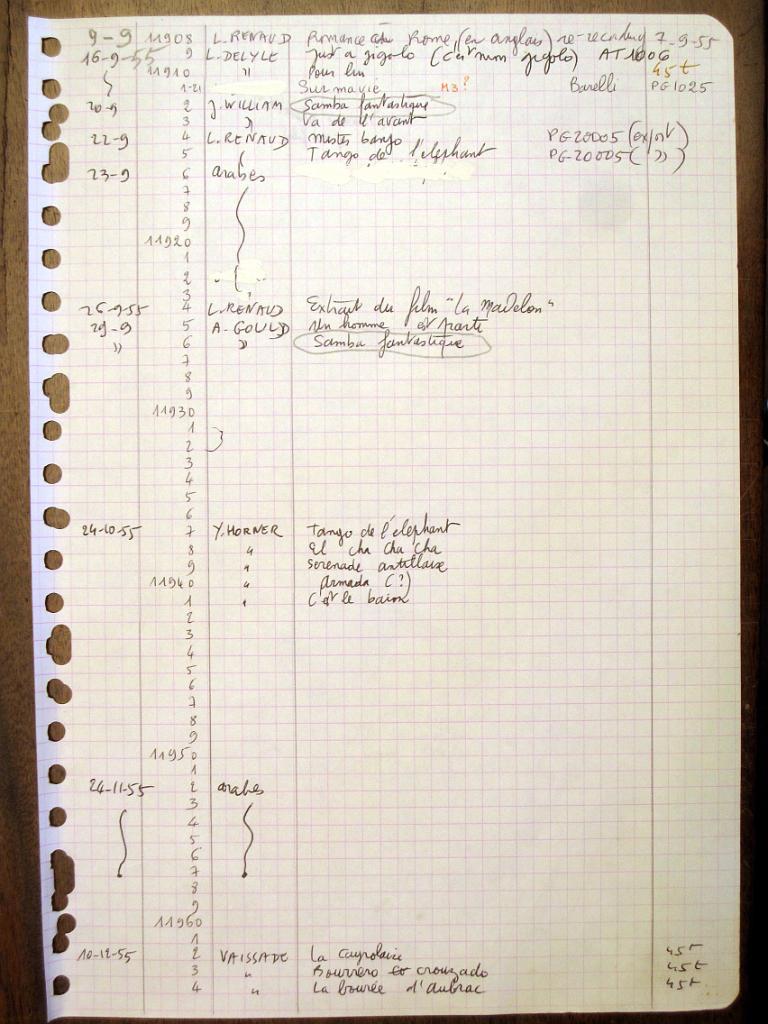 9-9 11908 L. RENAUD Romance à Rome (en anglais) re-recording 7-9-55
16-9-55 9 L. DELYLE Just a gigolo (C'est mon gigolo) AT 1006
11910 " Pour lui 45t
1-21 Sur ma vie M3? Barelli PG 1025
20-9 2 J. WILLIAM Samba fantastique
3 " Va de l'avant
22-9 4 L. RENAUD Mister banjo PG 20005 (export)
5 Tango de l'elephant PG 20005 ( " )
23-9 6 arabes
7
8
9
11920
1
2
3
26-9-55 4 L. RENAUD Extrait du film "La Madelon"
29-9 5 A. GOULD Un homme est
" 6 " Samba fantastique
7
8
9
11930
1
2
3
4
5
6
24-10-55 7 Y. HORNER Tango de l'elephant
8 " El cha cha cha
9 " serenade antillaise
11940 " Armada (?)
1 " C'est le baion
2
3
4
5
6
7
8
9
11950
1
24-11-55 2 arabes
3
4
5
6
7
8
9
11960
1
10-12-55 2 VAISSADE La 45t
3 " Bourrero et crouzado 45t
4 " La bourée d'aubrac 45t